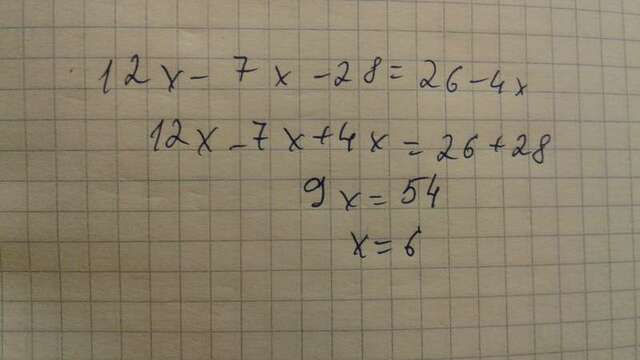 12x - 7x - 28 = 26 - 4x
12x - 7x + 4x = 26 + 28
9x = 54
x = 6